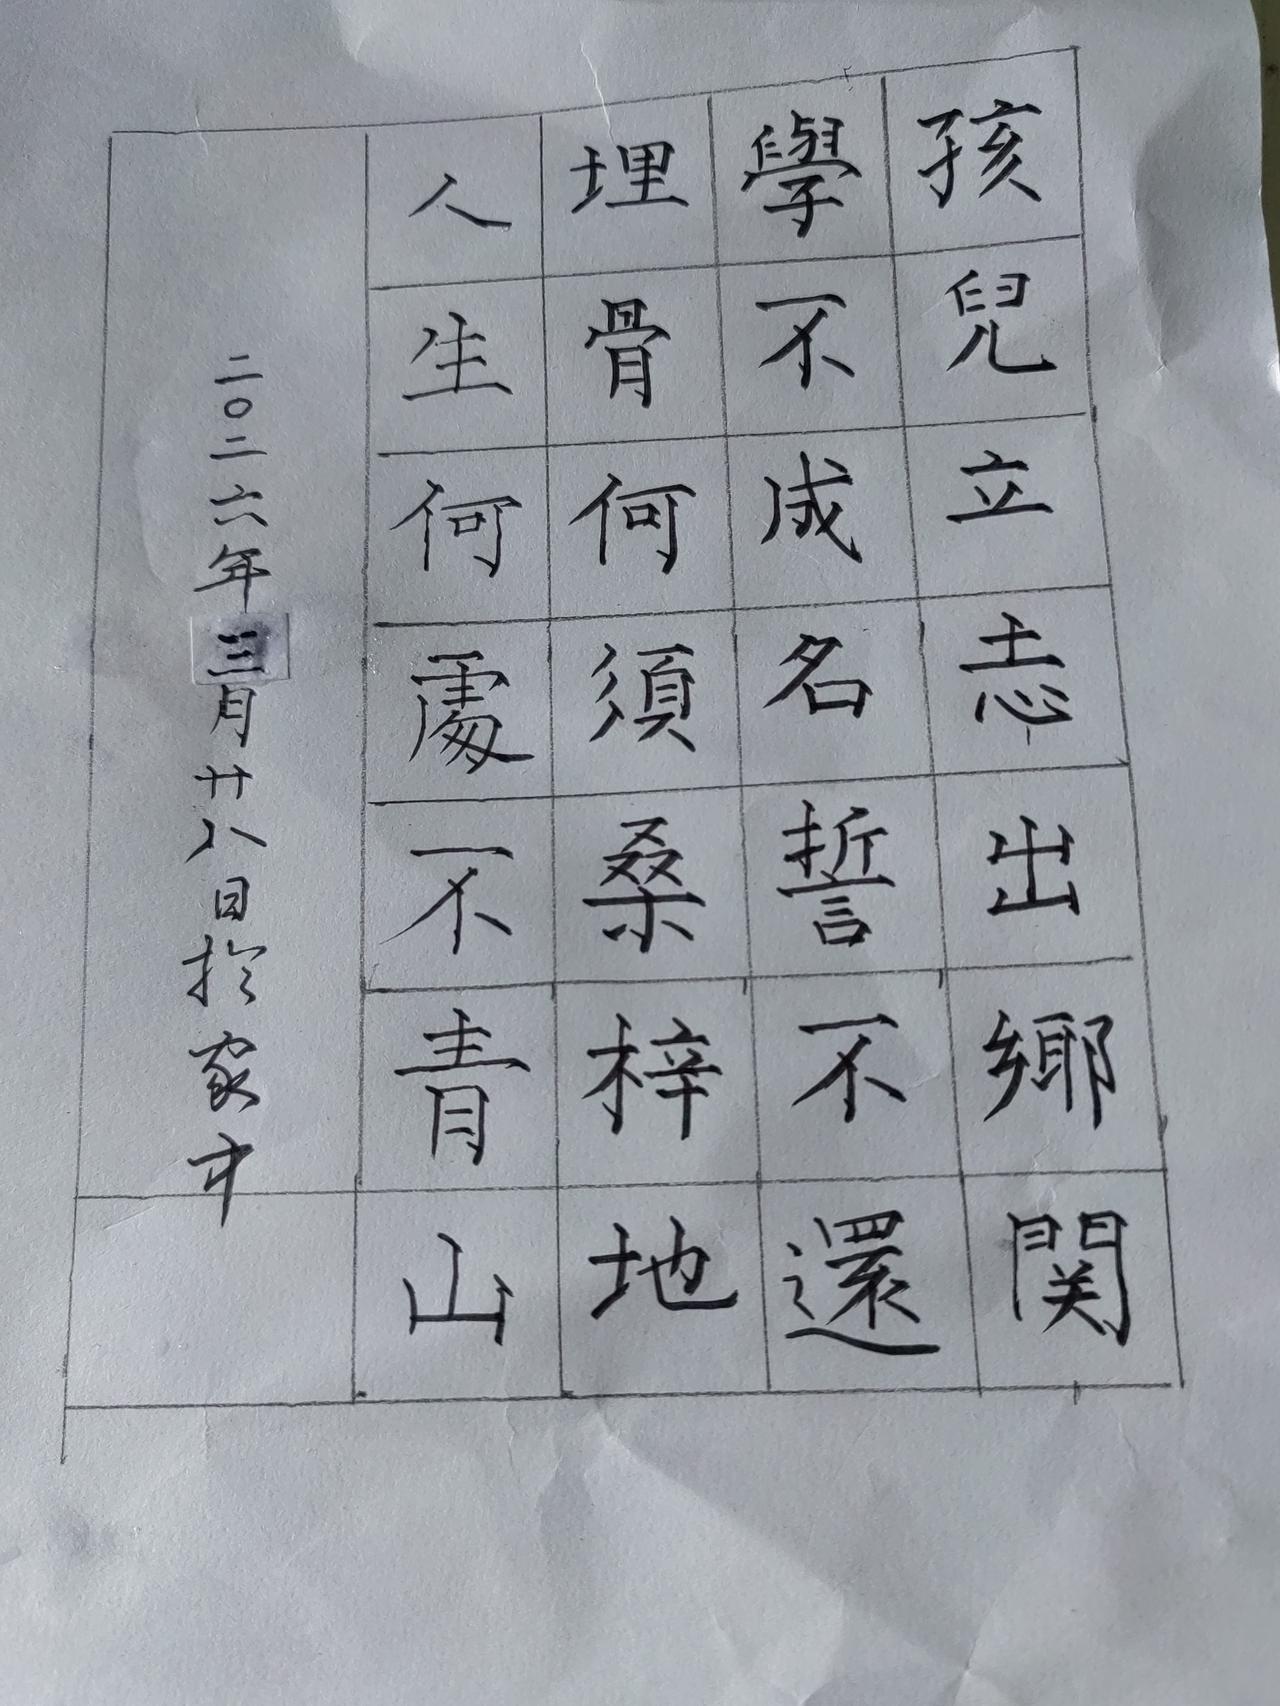 孩兒立志出鄉関
學不成名誓不還
埋骨何須桑梓地
人生何處不青山
二〇二六年三月廿八日於家中